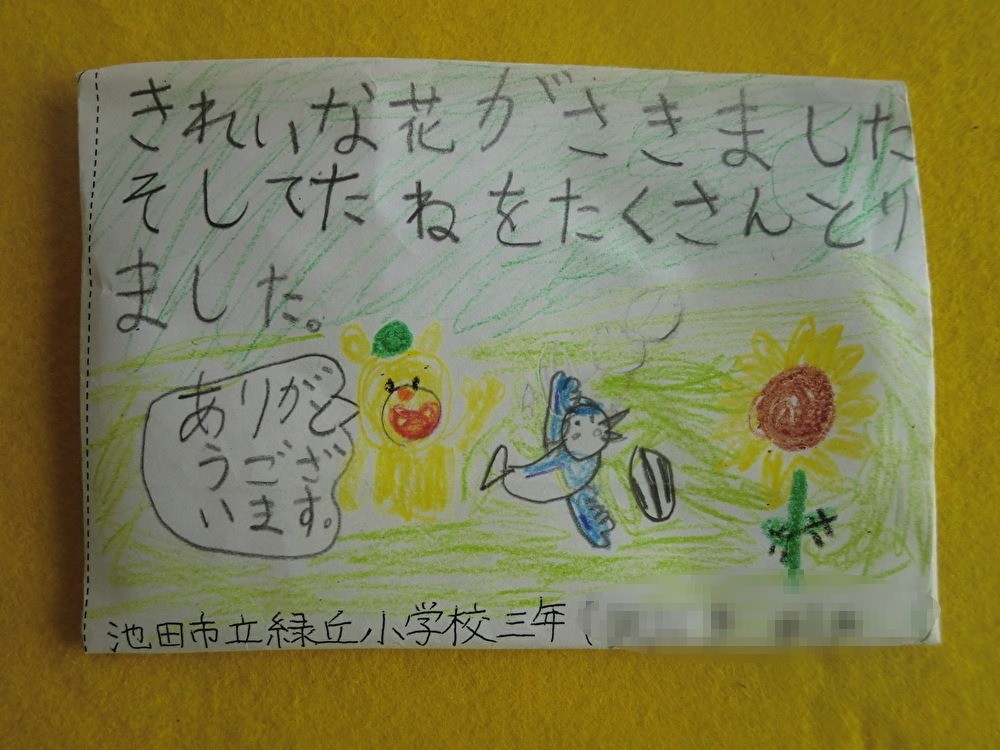 きれいな花がさきました
そしてたねをたくさんとり
ました。
ありがと
うござ
います。
池田市立緑丘小学校三年